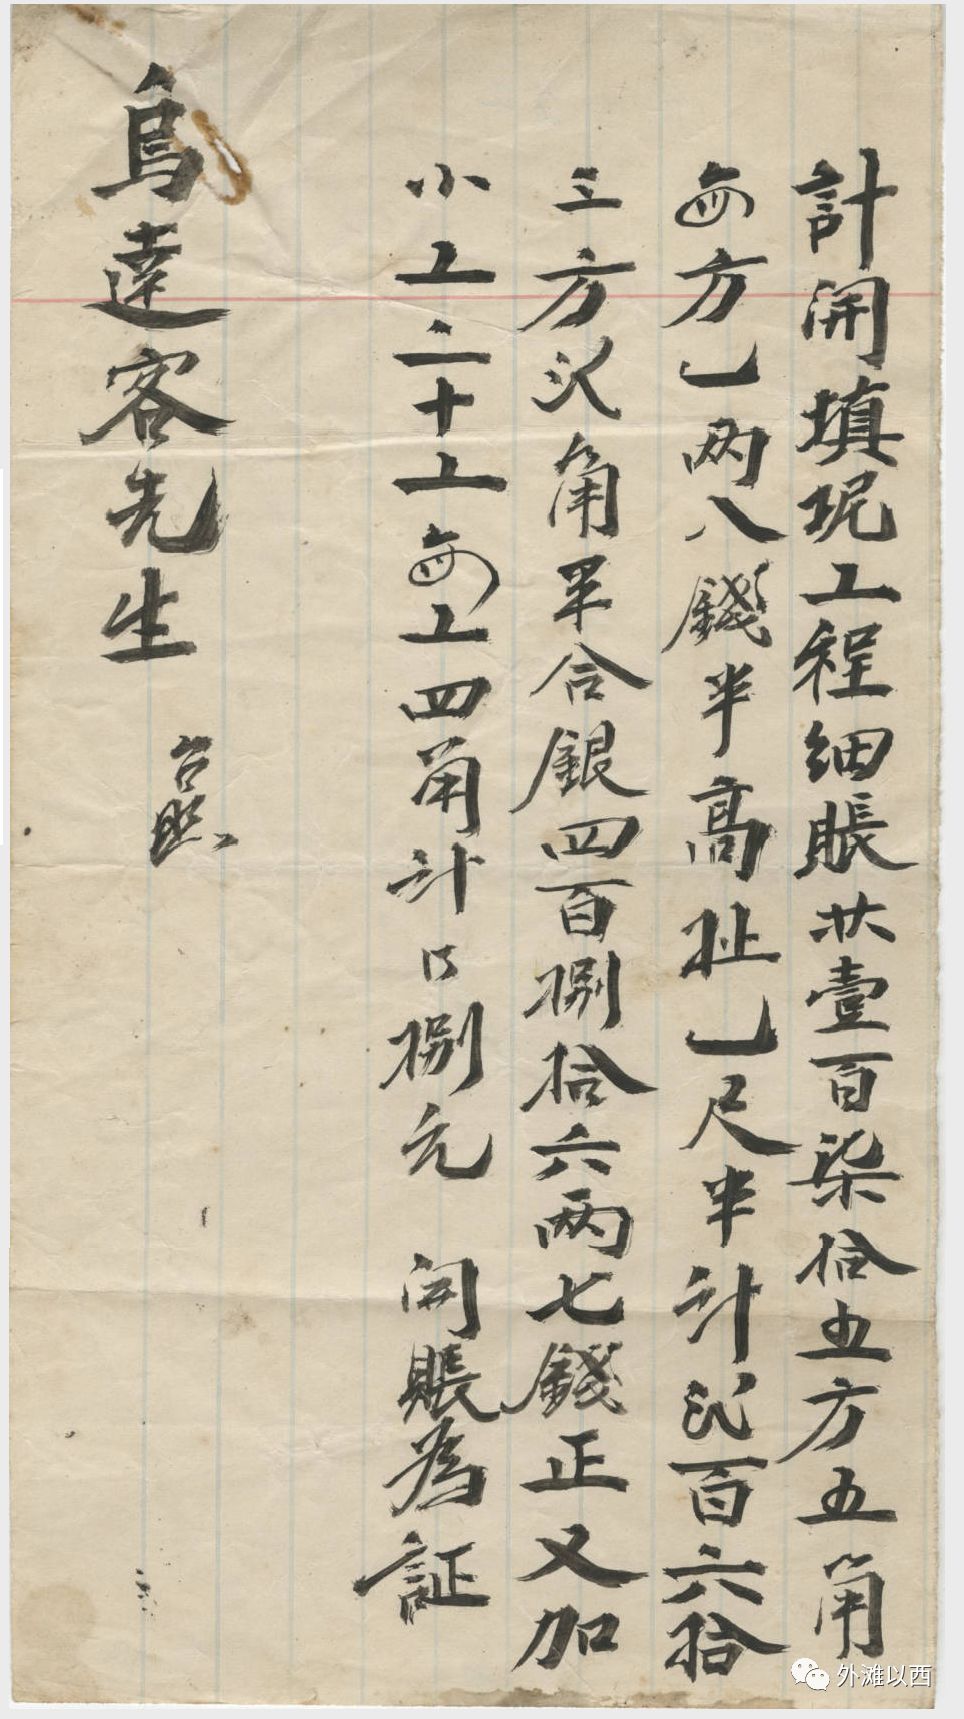 計開填坭工程細賬共壹百柒拾五方五角
每方乙両八錢半高扯乙尺半計弍百六拾
三方弍角半合銀四百捌拾六両七錢正又加
小工二十工每工四角計洋捌元 開賬為証
烏達客先生 台照
外滩以西